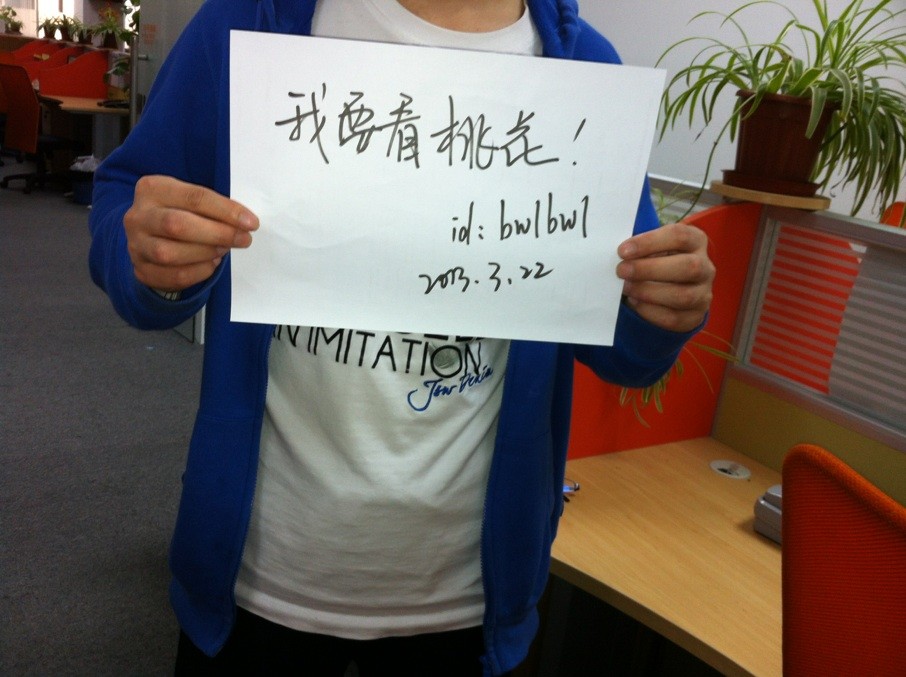 我要看桃花！
id: bw1bw1
2013.3.22
IMITATION